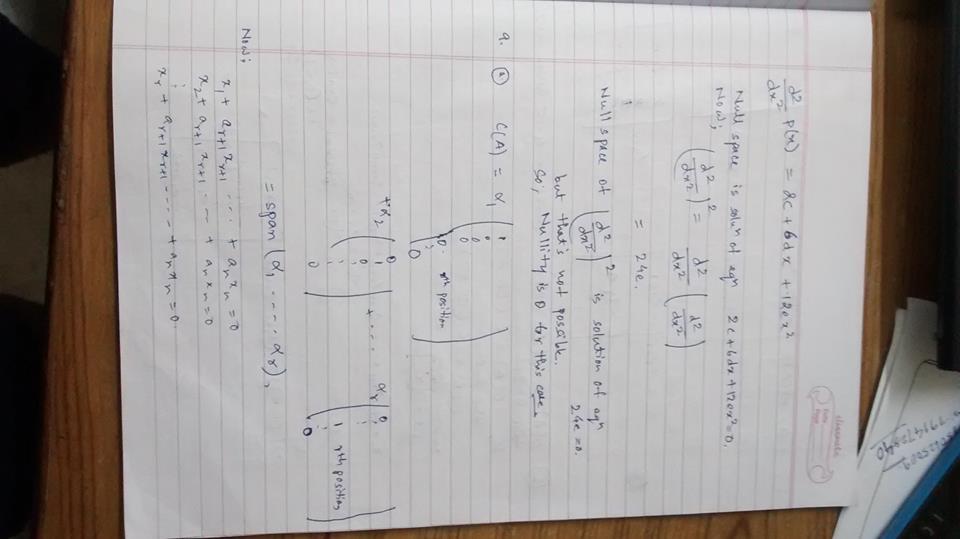 classmate
Date
Page
d²/dx² p(x) = 2c + 6dx + 12ex²
Null space is soln of eqn 2c + 6dx + 12ex² = 0.
Now; (d²/dx²)² = d²/dx² (d²/dx²)
= 24e.
Null space of (d²/dx²)² is solution of eqn
24e = 0.
but that's not possible.
So; Nullity is 0 for this case.
9. (a) C(A) = α₁
+ α₂ + .... αr
rth position
rth position
= span (α₁ .... αr),
Now;
x₁ + ar+1 xr+1 ... + an xn = 0
x₂ + ar+1 xr+1 ... + an xn = 0
xr + ar+1 xr+1 ..... + an xn = 0.